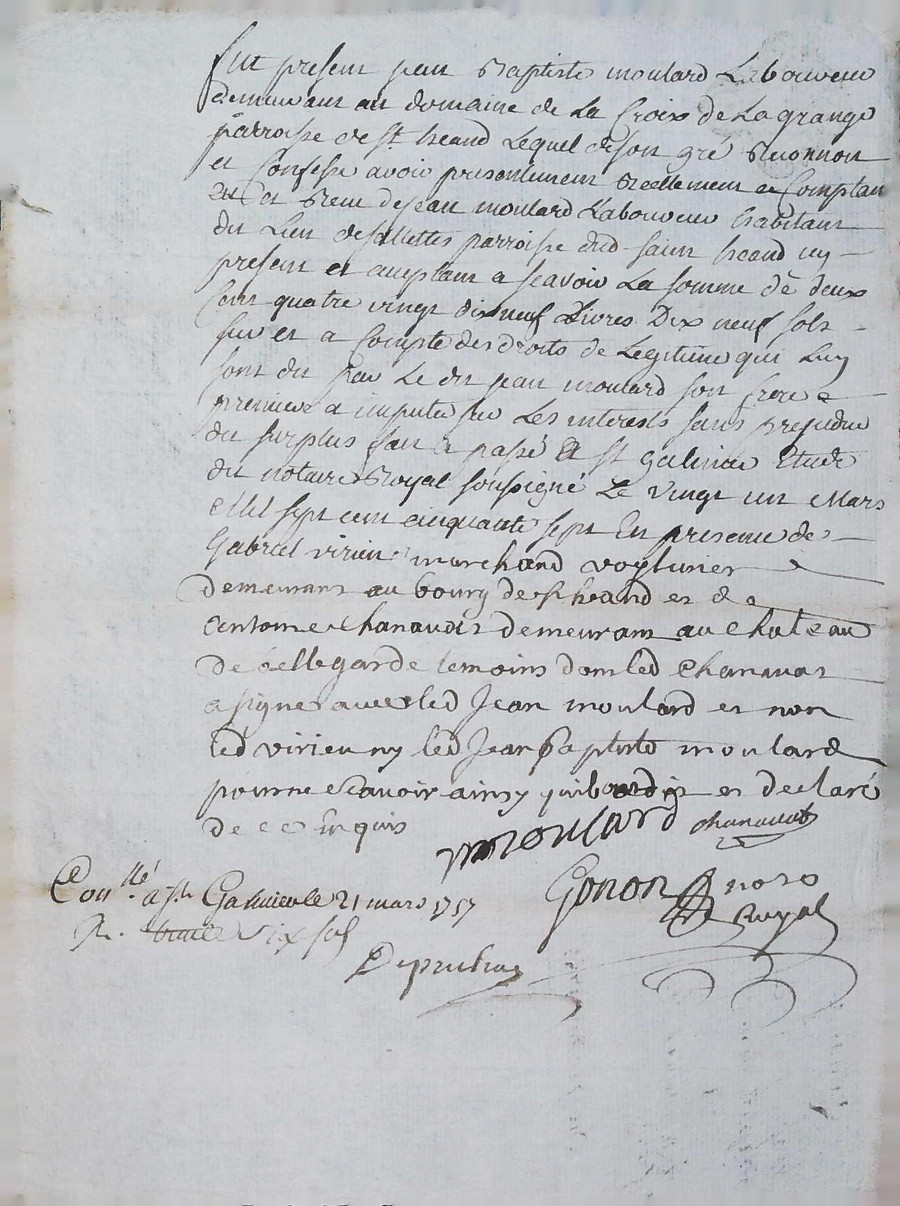 Fut present jean Baptiste moulard Laboureur
demeurant au domaine de La Croix de La grange
parroisse de St heand Lequel de son gré Reconnoit
et Confesse avoir presentement Reellement et Comptant
Eu et Receu de jean moulard Laboureur habitant
du Lieu de parroisse dud saint heand icy
present et acceptant a scavoir La somme de deux
Cent quatre vingt dix neuf Livres Dix neuf sols
sur et a Compte des droits de Legitime qui Luy
sont du par Le dit jean moulard son frere a
premier a imputer sur Les interests sans prejudice
du surplus fait et passé a St galmier Etude
du notaire Royal soussigné Le vingt un Mars
Mil sept cent cinquante sept En presence de
Gabriel virieu marchand voyturier
demeurant au bourg de St heand et de
antoine Chanavat demeurant au Chateau
de bellegarde temoins dont led Chanavat
a signé avec led Jean moulard et non
led virieu ny led Jean Baptiste moulard
pour ne scavoir ainsy quils ont dit et declaré
de ce Enquis
moulard chanavat
Gonon no.re
Royal
Con.llé a St Galmier le 21 mars 1757
R. six sols